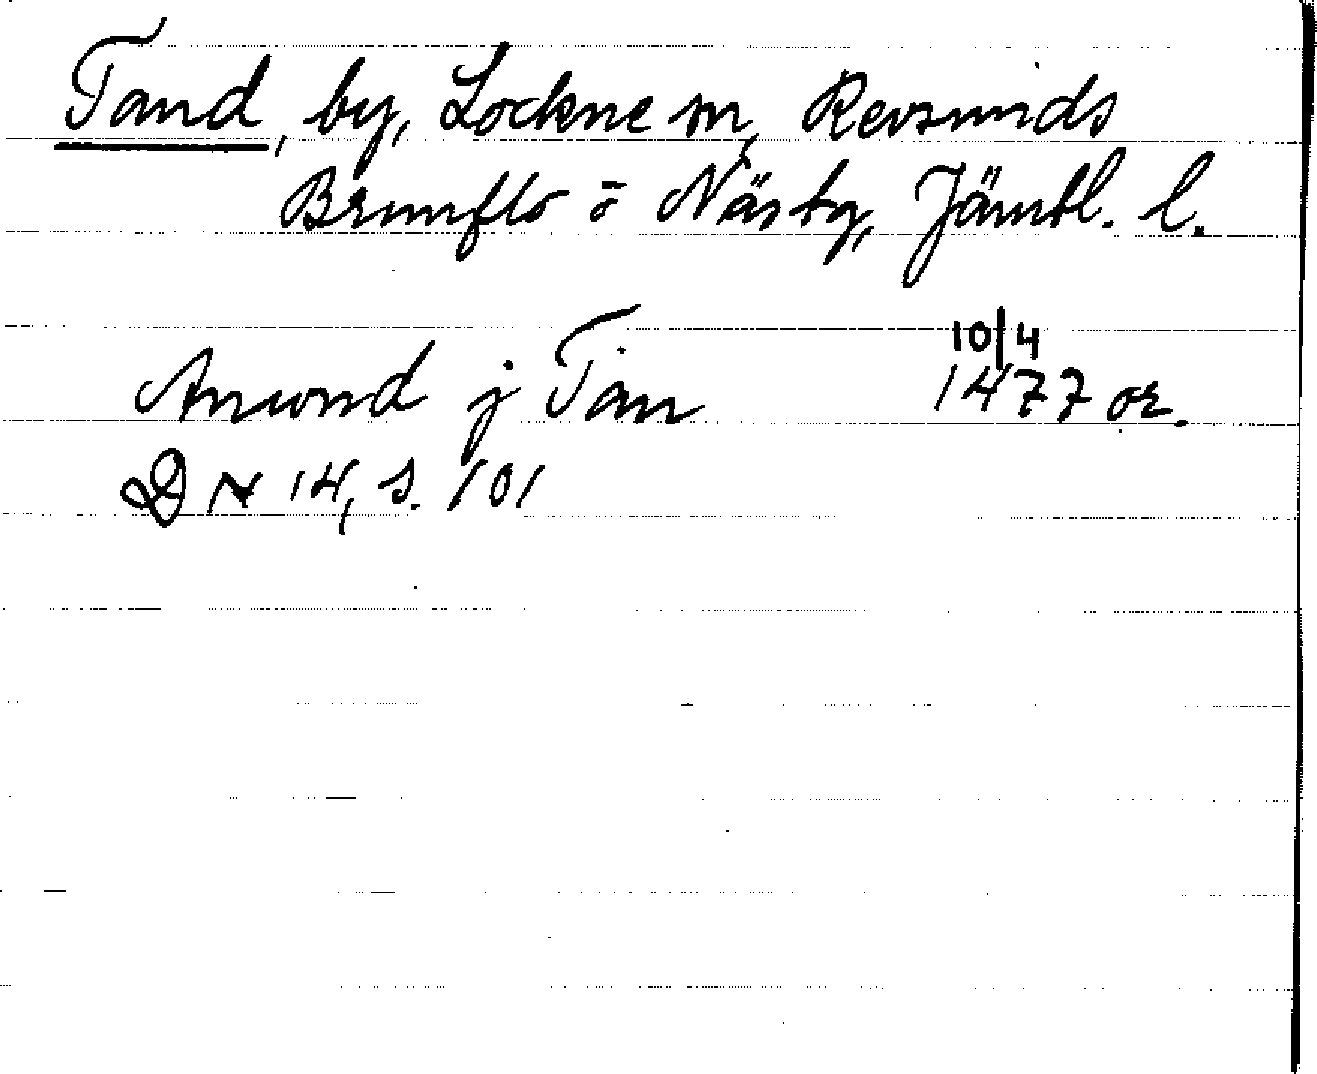 Tand, by, Lockne sn, Revsunds
Brunflo o Näs tg, Jämtl. l.
10/4
Anund j Tan 1477 or.
DN 14, s. 101